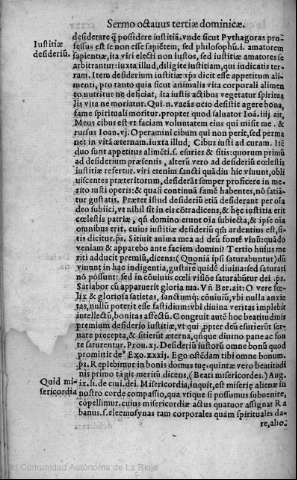 Sermo octauus tertiæ dominicæ.
Iustitiæ desideriū.
desiderare q̃ possidere iustitiā. vnde sicut Pythagoras pro
fessus est se non esse sapiētem, sed philosophū. i. amatorem
sapientiæ, ita viri electi non iustos, sed iustitiæ amatores se
arbitrantur: iuxta illud, diligite iustitiam, qui iudicatis ter-
ram. Item desiderium iustitiæ xp̃s dicit esse appetitum ali-
menti, pro tanto quia sicut animalis vita corporali alimen
to nutritur ne deficiat, ita iustitiæ actibus vegetatur spirita
lis vita ne moriatur. Qui n. vacās ocio desistit agere bona,
fame spirituali moritur. propter quod saluator Ioā. iiij. ait,
Meus cibus est vt faciam voluntatem eius qui misit me. &
rursus Ioan. vj. Operamini cibum qui non perit, sed perma
net in vitā æternam. iuxta illud, Cibus iusti ad
duo sunt appetitus alimēti. s. esuries & sitis: quorum primū
ad desiderium præsentis, alterū vero ad desideriū cœlestis
iustitiæ refertur. viri etenim sancti quādiu hic viuunt, obli
uiscentes præteritorum, desiderāt semper proficere in me-
rito iusti operis: & quasi continuā famē habentes, nō satiā
tur gustatis. Præter istud desideriū etiā desiderant per oīa
deo subijci, vt nihil sit in eis & hęc iustitia erit
in cœlesti patria, qñ domino eunte oīa subiecta, & ipse oīa
omnibus erit. cuius iustitiæ desideriū qñ ardentius est, si-
tis dicitur. ps. Sitiuit anima mea ad deū fontē viuū: quādo
veniam & apparebo ante faciem domini? Tertio huius me
riti adducit premiū, dicens: (Quoniā ipsi saturabuntur) dū
viuunt in hac indigentia, gustare quidē diuina: sed saturari
nō possunt: sed in cœlis visiōe saturabūtur dei. ps.
Satiabor cū apparuerit gloria tua. Vñ Ber. ait: O vere fe-
lix & gloriosa satietas, sanctumq; cōuiuiū, vbi nulla anxie
tas, nullū poterit esse fastidium: vbi diuina veritas implebit
intellectū, bonitas affectū. Congruit autē hoc beatitudinis
premium desiderio iustitiæ, vt qui ppter deū esurierūt ser-
uare præcepta, & sitierūt æterna, vtique diuino pane ac fon
te saturentur. Prou. xj. Desideriū iustorū omne bonū quod
prominit deꝰ Exo. xxxij. Ego ostēdam tibi omne bonum.
ps. Replebimur in bonis domus tuę. quintæ vero beatitudi
Quid misericordia
nis primo tāgit meritū dicens, (Beati misericordes.) Aug.
ix. li. de ciui. dei. Misericordia, inquit, est miserię alienæ in
nostro corde compassio, qua vtique si possumus subuenire,
cōpellimur. cuius misericordiæ actus quatuor assignat Ra
banus. s. eleemosynas tam corporales quàm spirituales da-
re, alio-
Comunidad Autónoma de La Rioja